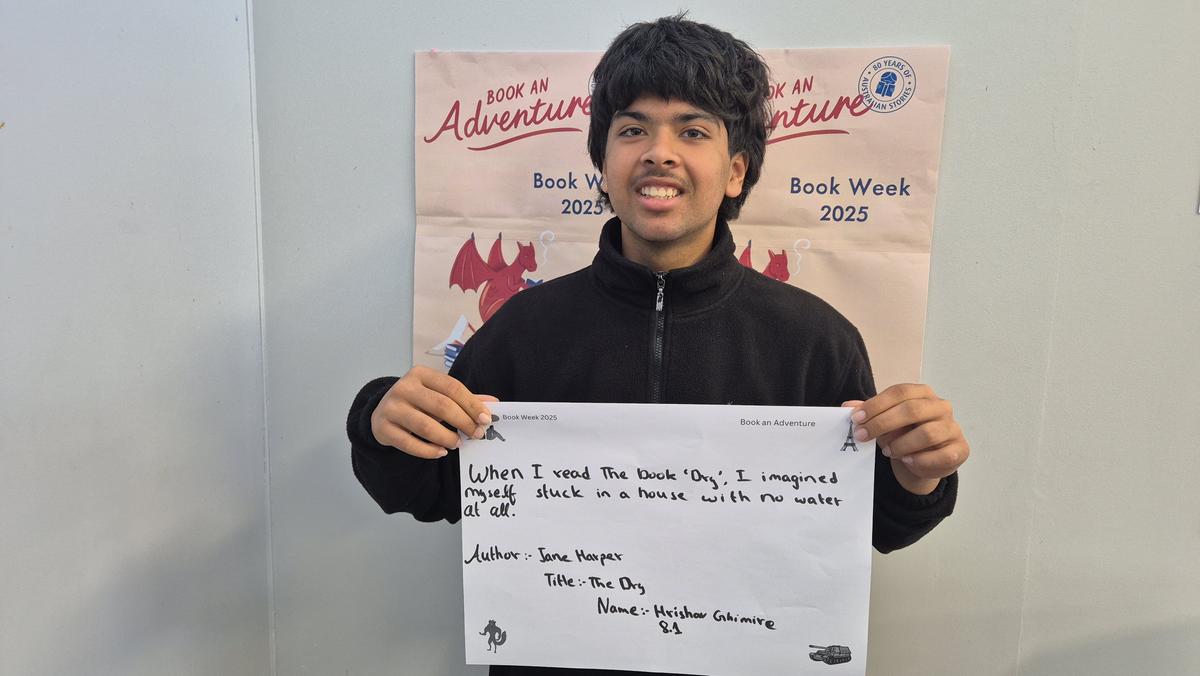 BOOK AN
Adventure
Book W
2025
OK AN
nture
80 YEARS OF
AUSTRALIAN STORIES
Book Week
2025
Book Week 2025
Book an Adventure
When I read The book 'Dry', I imagined
myself stuck in a house with no water
at all.
Author:- Jane Harper
Title:- The Dry
Name:- Hrishav Ghimire
8.1